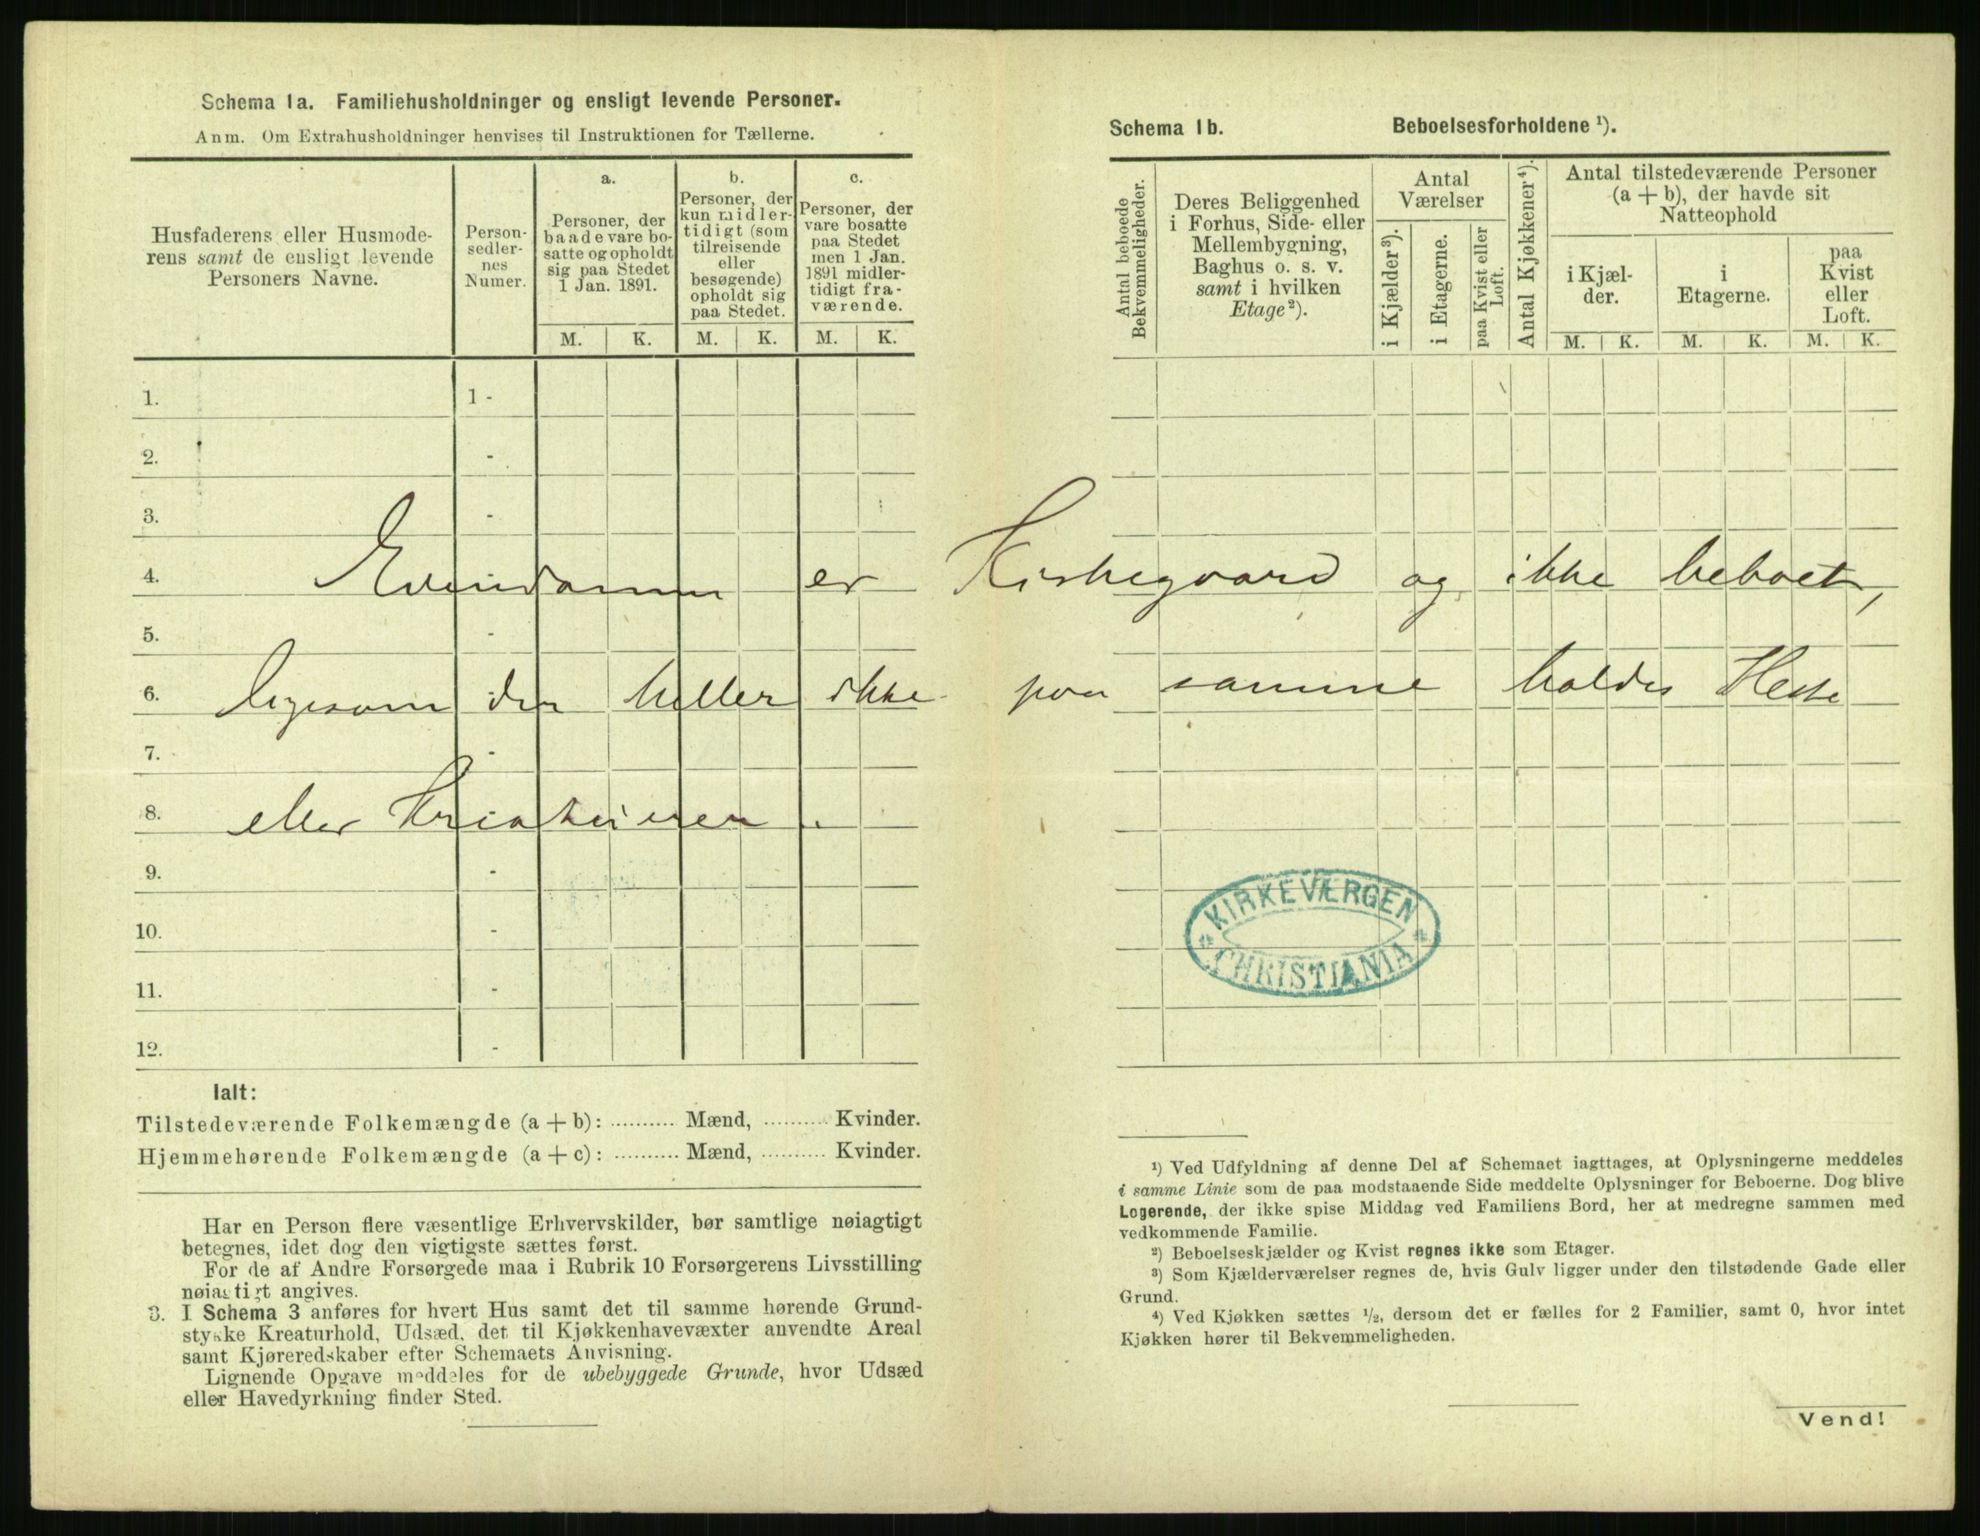 Schema 1a. Familiehusholdninger og ensligt levende Personer.
Anm. Om Extrahusholdninger henvises til Instruktionen for Tællerne.
Husfaderens eller Husmode-
rens samt de ensligt levende
Personers Navne.
Person-
sedler-
nes
Numer.
a.
Personer, der
baade vare bo-
satte og opholdt
sig paa Stedet
1 Jan. 1891.
b.
Personer, der
kun midler-
tidigt (som
tilreisende
eller
besøgende)
opholdt sig
paa Stedet.
c.
Personer, der
vare bosatte
paa Stedet
men 1 Jan.
1891 midler-
tidigt fra-
værende.
M. K. M. K. M. K.
1. 1 -
2. -
3. -
4. Eiendommen er Kirkegaard og ikke beboet,
5. -
6. ligesom der heller ikke paa samme holdes Heste
7. -
8. eller Kreaturer.
9. -
10. -
11. -
12. -
Ialt:
Tilstedeværende Folkemængde (a + b): .......... Mænd, .......... Kvinder.
Hjemmehørende Folkemængde (a + c): .......... Mænd, .......... Kvinder.
Har en Person flere væsentlige Erhvervskilder, bør samtlige nøiagtigt
betegnes, idet dog den vigtigste sættes først.
For de af Andre Forsørgede maa i Rubrik 10 Forsørgerens Livsstilling
nøiagtigt angives.
3. I Schema 3 anføres for hvert Hus samt det til samme hørende Grund-
stykke Kreaturhold, Udsæd, det til Kjøkkenhavevæxter anvendte Areal
samt Kjøreredskaber efter Schemaets Anvisning.
Lignende Opgave meddeles for de ubebyggede Grunde, hvor Udsæd
eller Havedyrkning finder Sted.
Schema 1b. Beboelsesforholdene ¹).
Antal beboede
Bekvemmeligheder.
Deres Beliggenhed
i Forhus, Side- eller
Mellembygning,
Baghus o. s. v.
samt i hvilken
Etage ²).
Antal
Værelser
i Kjælder ³).
i Etagerne.
paa Kvist eller
Loft.
Antal Kjøkkener ⁴).
Antal tilstedeværende Personer
(a + b), der havde sit
Natteophold
i Kjæl-
der.
i
Etagerne.
paa
Kvist
eller
Loft.
M. K. M. K. M. K.
KIRKEVÆRGEN
* *
CHRISTIANIA
¹) Ved Udfyldning af denne Del af Schemaet iagttages, at Oplysningerne meddeles
i samme Linie som de paa modstaaende Side meddelte Oplysninger for Beboerne. Dog blive
Logerende, der ikke spise Middag ved Familiens Bord, her at medregne sammen med
vedkommende Familie.
²) Beboelseskjælder og Kvist regnes ikke som Etager.
³) Som Kjælderværelser regnes de, hvis Gulv ligger under den tilstødende Gade eller
Grund.
⁴) Ved Kjøkken sættes ¹/₂, dersom det er fælles for 2 Familier, samt 0, hvor intet
Kjøkken hører til Bekvemmeligheden.
Vend!